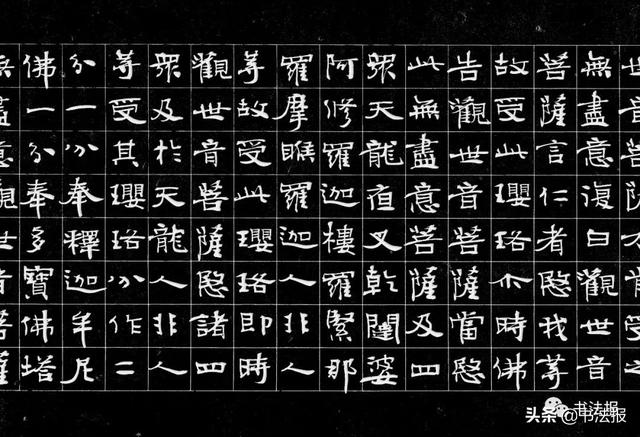 世音菩薩不肯受之
無盡意復白觀世音
菩薩言仁者愍我等
故受此瓔珞尒時佛
告觀世音菩薩當愍
此無盡意菩薩及四
眾天龍夜叉乾闥婆
阿修羅迦樓羅緊那
羅摩睺羅迦人非人
等故受此瓔珞即時
觀世音菩薩愍諸四
眾及於天龍人非人
等受其瓔珞分作二
分一分奉釋迦牟尼
佛一分奉多寶佛塔
無盡意觀世音菩薩
书法报
头条 @书法报